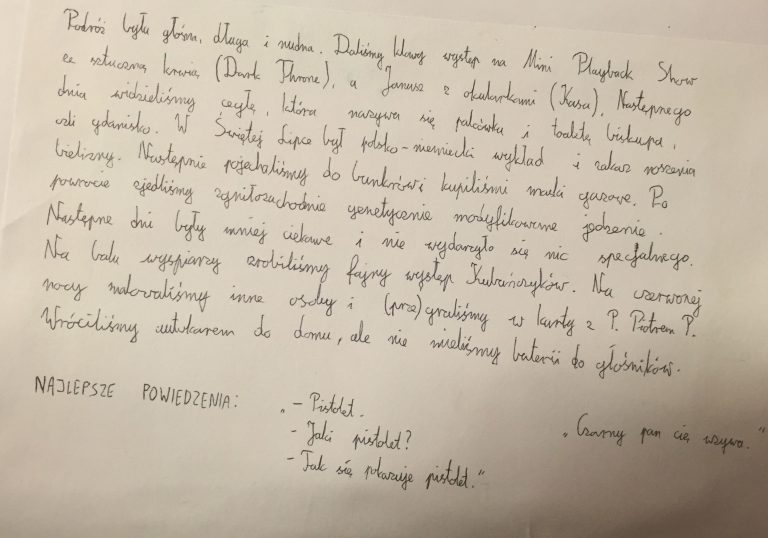 Podróż była głośna, długa i nudna. Daliśmy klawy występ na Mini Playback Show
ze sztuczną krwią (Dark Throne), a Janusz z okularkami (Kasa). Następnego
dnia widzieliśmy cegłę, która nazywa się palcówka i toaletę biskupa,
czli gdanisko. W Świętej Lipce był polsko-niemiecki wykład i zakaz noszenia
bielizny. Następnie pojechaliśmy do bunkrów i kupiliśmi maski gazowe. Po
powrocie zjedliśmy zgniłozachodnie genetycznie modyfikowane jedzenie.
Następne dni były mniej ciekawe i nie wydarzyło się nic specjalnego.
Na balu wyspiarzy zrobiliśmy fajny występ Kubańczyków. Na czerwonej
nocy malowaliśmy inne osoby i (prze)graliśmy w karty z P. Piotrem P.
Wróciliśmy autokarem do domu, ale nie mieliśmy baterii do głośników.
NAJLEPSZE POWIEDZENIA: „- Pistolet.
- Jaki pistolet? „Czarny pan cię wzywa."
- Tak się pokazuje pistolet."